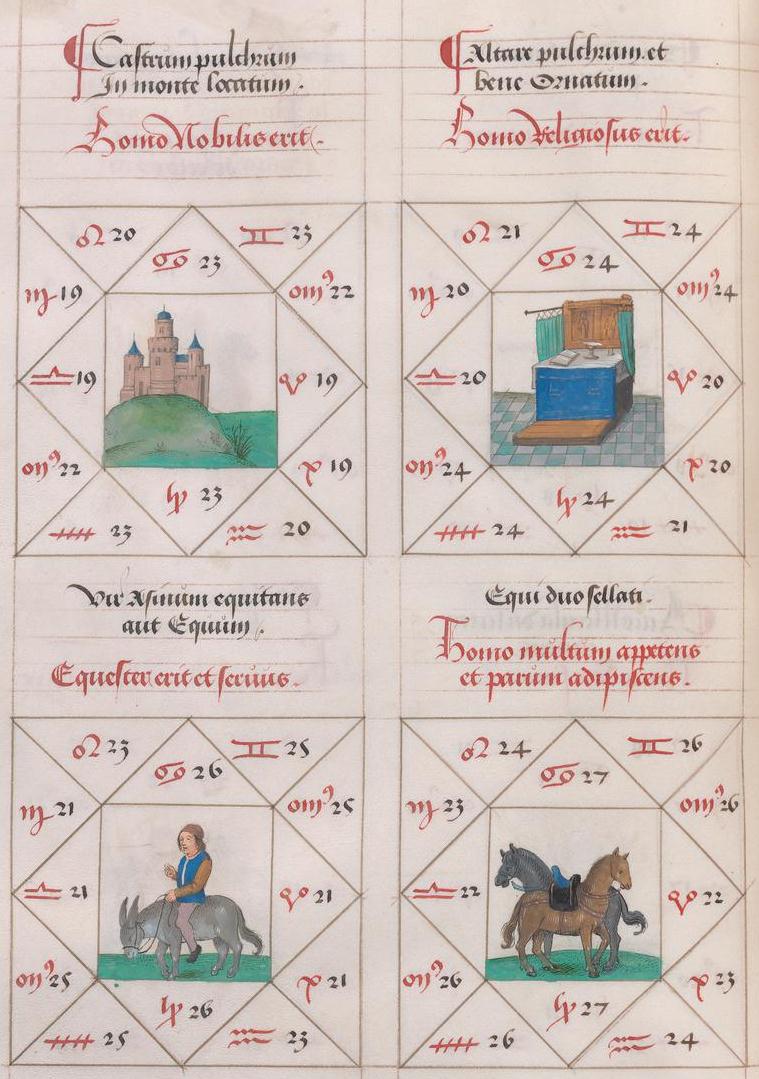 ¶ Castrum pulchrum
In monte locatum.
Homo Nobilis erit.
♌ 20 ♊ 23
♋ 23
♍ 19 ♉ 22
♎ 19 ♈ 19
♏ 22 ♓ 19
♑ 23
♐ 23 ♒ 20
¶ Altare pulchrum et
bene Ornatum.
Homo Religiosus erit.
♌ 21 ♊ 24
♋ 24
♍ 20 ♉ 24
♎ 20 ♈ 20
♏ 24 ♓ 20
♑ 24
♐ 24 ♒ 21
Vir Asinum equitans
aut Equum.
Equester erit et servus.
♌ 23 ♊ 25
♋ 26
♍ 21 ♉ 25
♎ 21 ♈ 21
♏ 25 ♓ 21
♑ 26
♐ 25 ♒ 23
Equi duo sellati.
Homo multum appetens
et parum adipiscens.
♌ 24 ♊ 26
♋ 27
♍ 23 ♉ 26
♎ 22 ♈ 22
♏ 26 ♓ 23
♑ 27
♐ 26 ♒ 24